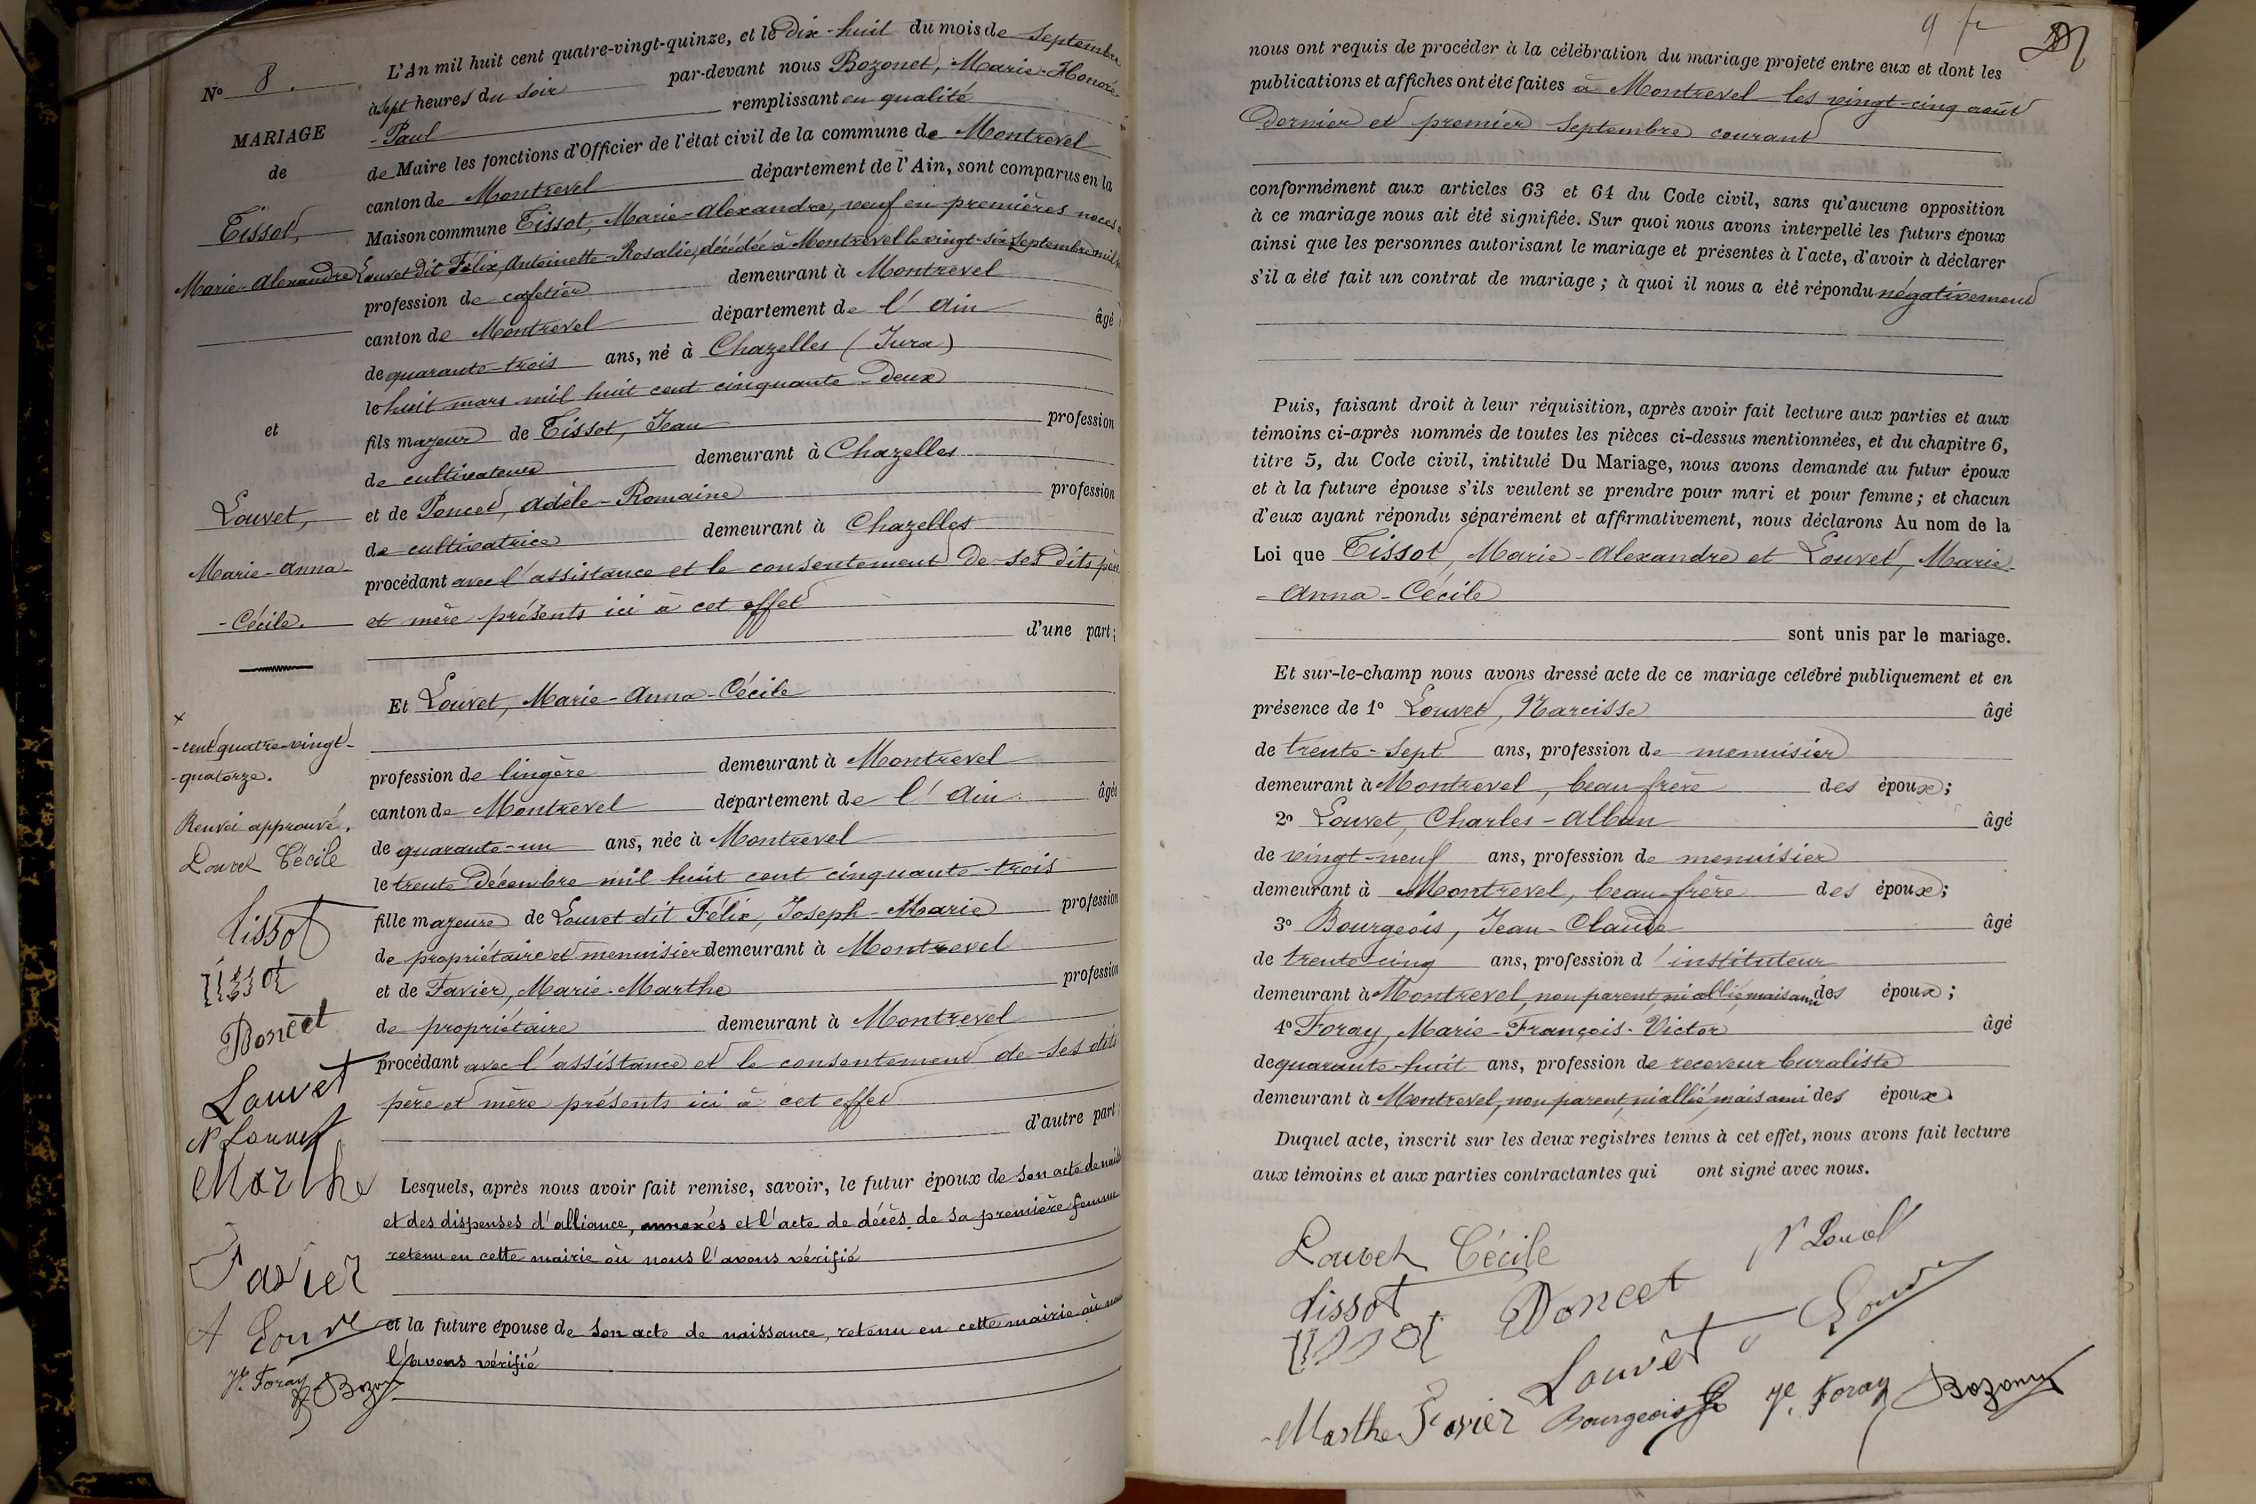 N° 8.
MARIAGE
de
Tissot,
Marie-Alexandre
et
Louvet,
Marie-Anna-
-Cécile.
-cent quatre-vingt-
-quatorze.
Renvoi approuvé.
Louvet Cécile
Tissot
Tissot
Poncet
Louvet
N Louvet
Marthe
Favier
Vr Foray
L'An mil huit cent quatre-vingt-quinze, et le Dix-huit du mois de Septembre
à sept heures du soir par-devant nous Bozonet, Marie-Honoré-
-Paul remplissant en qualité
de Maire les fonctions d'Officier de l'état civil de la commune de Montrevel
canton de Montrevel département de l'Ain, sont comparus en la
Maison commune Tissot, Marie-Alexandre, veuf en premières noces
Louvet dit Félix, Antoinette-Rosalie, décédée à Montrevel le vingt-six Septembre mil
profession de cafetier demeurant à Montrevel
canton de Montrevel département de l'Ain âgé
de quarante-trois ans, né à Chazelles (Jura)
le huit mars mil huit cent cinquante-deux
fils majeur de Tissot, Jean profession
de cultivateur demeurant à Chazelles
et de Poncet, Adèle-Romaine profession
de cultivatrice demeurant à Chazelles
procédant avec l'assistance et le consentement de ses dits père
et mère présents ici à cet effet
d'une part;
Et Louvet, Marie-Anna-Cécile
profession de lingère demeurant à Montrevel
canton de Montrevel département de l'Ain âgée
de quarante-un ans, née à Montrevel
le trente Décembre mil huit cent cinquante-trois
fille majeure de Louvet dit Félix, Joseph-Marie profession
de propriétaire et menuisier demeurant à Montrevel
et de Favier, Marie-Marthe profession
de propriétaire demeurant à Montrevel
procédant avec l'assistance et le consentement de ses dits
père et mère présents ici à cet effet
d'autre part;
Lesquels, après nous avoir fait remise, savoir, le futur époux de son acte de
et des dispenses d'alliance, annexés et l'acte de décès de sa première femme
retenu en cette mairie où nous l'avons vérifié
et la future épouse de son acte de naissance, retenu en cette mairie où nous
l'avons vérifié
nous ont requis de procéder à la célébration du mariage projeté entre eux et dont les
publications et affiches ont été faites à Montrevel les vingt-cinq août
dernier et premier Septembre courant
conformément aux articles 63 et 64 du Code civil, sans qu'aucune opposition
à ce mariage nous ait été signifiée. Sur quoi nous avons interpellé les futurs époux
ainsi que les personnes autorisant le mariage et présentes à l'acte, d'avoir à déclarer
s'il a été fait un contrat de mariage; à quoi il nous a été répondu négativement
Puis, faisant droit à leur réquisition, après avoir fait lecture aux parties et aux
témoins ci-après nommés de toutes les pièces ci-dessus mentionnées, et du chapitre 6,
titre 5, du Code civil, intitulé Du Mariage, nous avons demandé au futur époux
et à la future épouse s'ils veulent se prendre pour mari et pour femme; et chacun
d'eux ayant répondu séparément et affirmativement, nous déclarons Au nom de la
Loi que Tissot, Marie-Alexandre et Louvet, Marie-
-Anna-Cécile
sont unis par le mariage.
Et sur-le-champ nous avons dressé acte de ce mariage célébré publiquement et en
présence de 1° Louvet, Narcisse âgé
de trente-sept ans, profession de menuisier
demeurant à Montrevel, beau-frère des époux;
2° Louvet, Charles-Alban âgé
de vingt-neuf ans, profession de menuisier
demeurant à Montrevel, beau-frère des époux;
3° Bourgeois, Jean-Claude âgé
de trente-cinq ans, profession d'instituteur
demeurant à Montrevel, non parent, ni allié, mais ami des époux;
4° Foray, Marie-François-Victor âgé
de quarante-huit ans, profession de receveur buraliste
demeurant à Montrevel, non parent, ni allié, mais ami des époux.
Duquel acte, inscrit sur les deux registres tenus à cet effet, nous avons fait lecture
aux témoins et aux parties contractantes qui ont signé avec nous.
Louvet Cécile
N Louvet
Tissot
Poncet
Tissot
Louvet
Marthe Favier
Bourgeois
Vr Foray
Bozonet